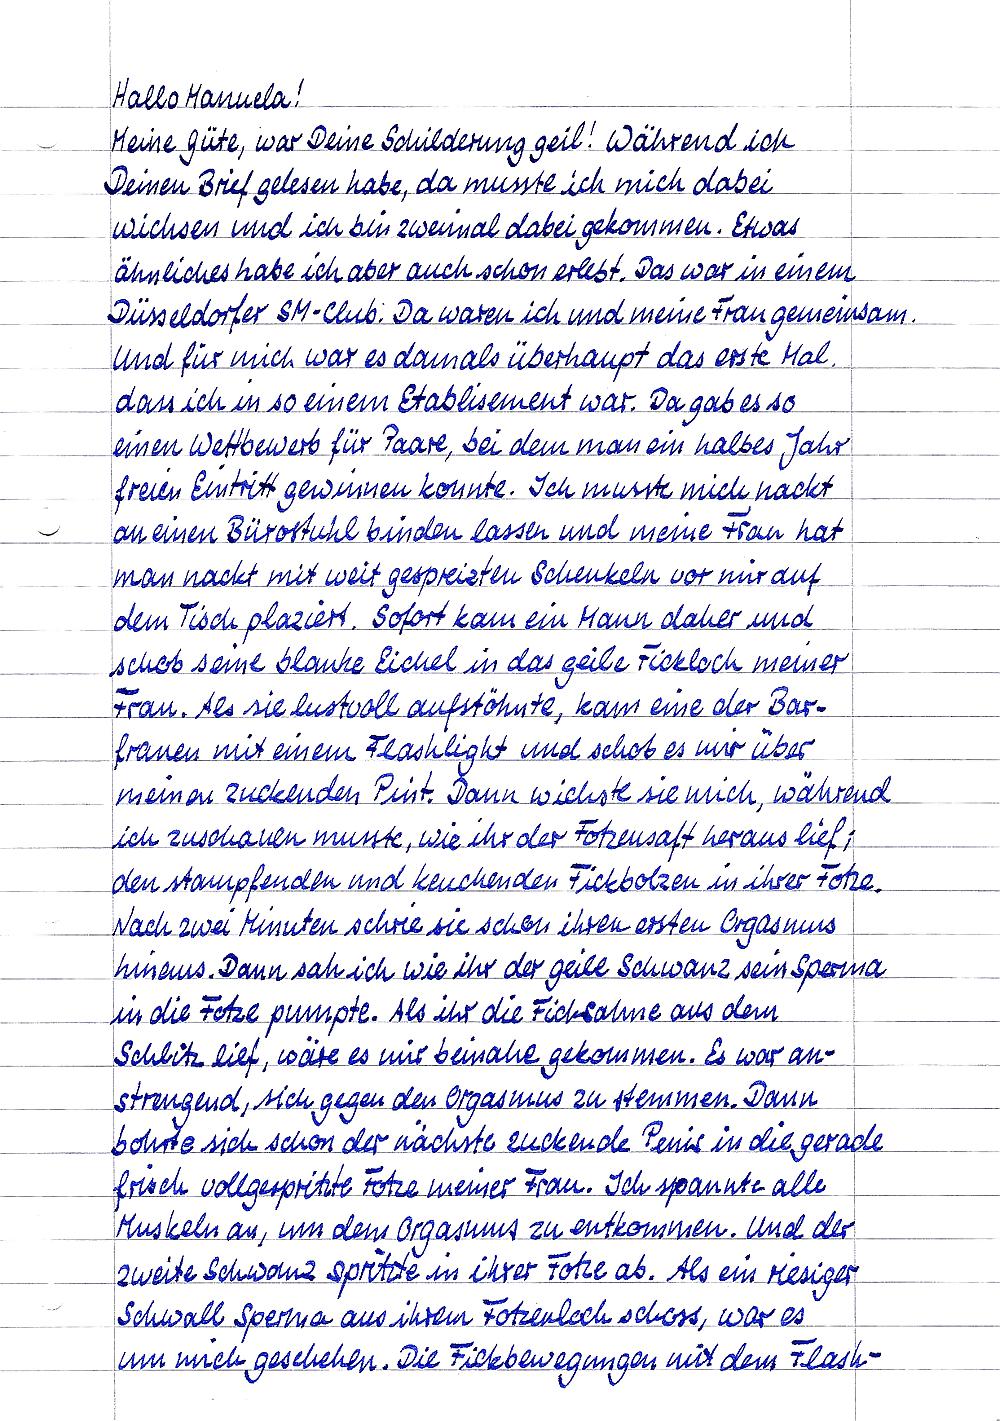 Hallo Manuela!
Meine Güte, war Deine Schilderung geil! Während ich
Deinen Brief gelesen habe, da musste ich mich dabei
wichsen und ich bin zweimal dabei gekommen. Etwas
ähnliches habe ich aber auch schon erlebt. Das war in einem
Düsseldorfer SM-Club. Da waren ich und meine Frau gemeinsam.
Und für mich war es damals überhaupt das erste Mal,
dass ich in so einem Etablisement war. Da gab es so
einen Wettbewerb für Paare, bei dem man ein halbes Jahr
freien Eintritt gewinnen konnte. Ich musste mich nackt
an einen Bürostuhl binden lassen und meine Frau hat
man nackt mit weit gespreizten Schenkeln vor mir auf
dem Tisch plaziert. Sofort kam ein Mann daher und
schob seine blanke Eichel in das geile Fickloch meiner
Frau. Als sie lustvoll aufstöhnte, kam eine der Bar-
frauen mit einem Flashlight und schob es mir über
meinen zuckenden Pint. Dann wichste sie mich, während
ich zuschauen musste, wie ihr der Fotzensaft heraus lief;
den stampfenden und keuchenden Fickbolzen in ihrer Fotze.
Nach zwei Minuten schrie sie schon ihren ersten Orgasmus
hinaus. Dann sah ich wie ihr der geile Schwanz sein Sperma
in die Fotze pumpte. Als ihr die Ficksahne aus dem
Schlitz lief, wäre es mir beinahe gekommen. Es war an-
strengend, sich gegen den Orgasmus zu stemmen. Dann
bohrte sich schon der nächste zuckende Penis in die gerade
frisch vollgespritzte Fotze meiner Frau. Ich spannte alle
Muskeln an, um dem Orgasmus zu entkommen. Und der
zweite Schwanz spritzte in ihrer Fotze ab. Als ein riesiger
Schwall Sperma aus ihrem Fotzenloch schoss, war es
um mich geschehen. Die Fickbewegungen mit dem Flash-